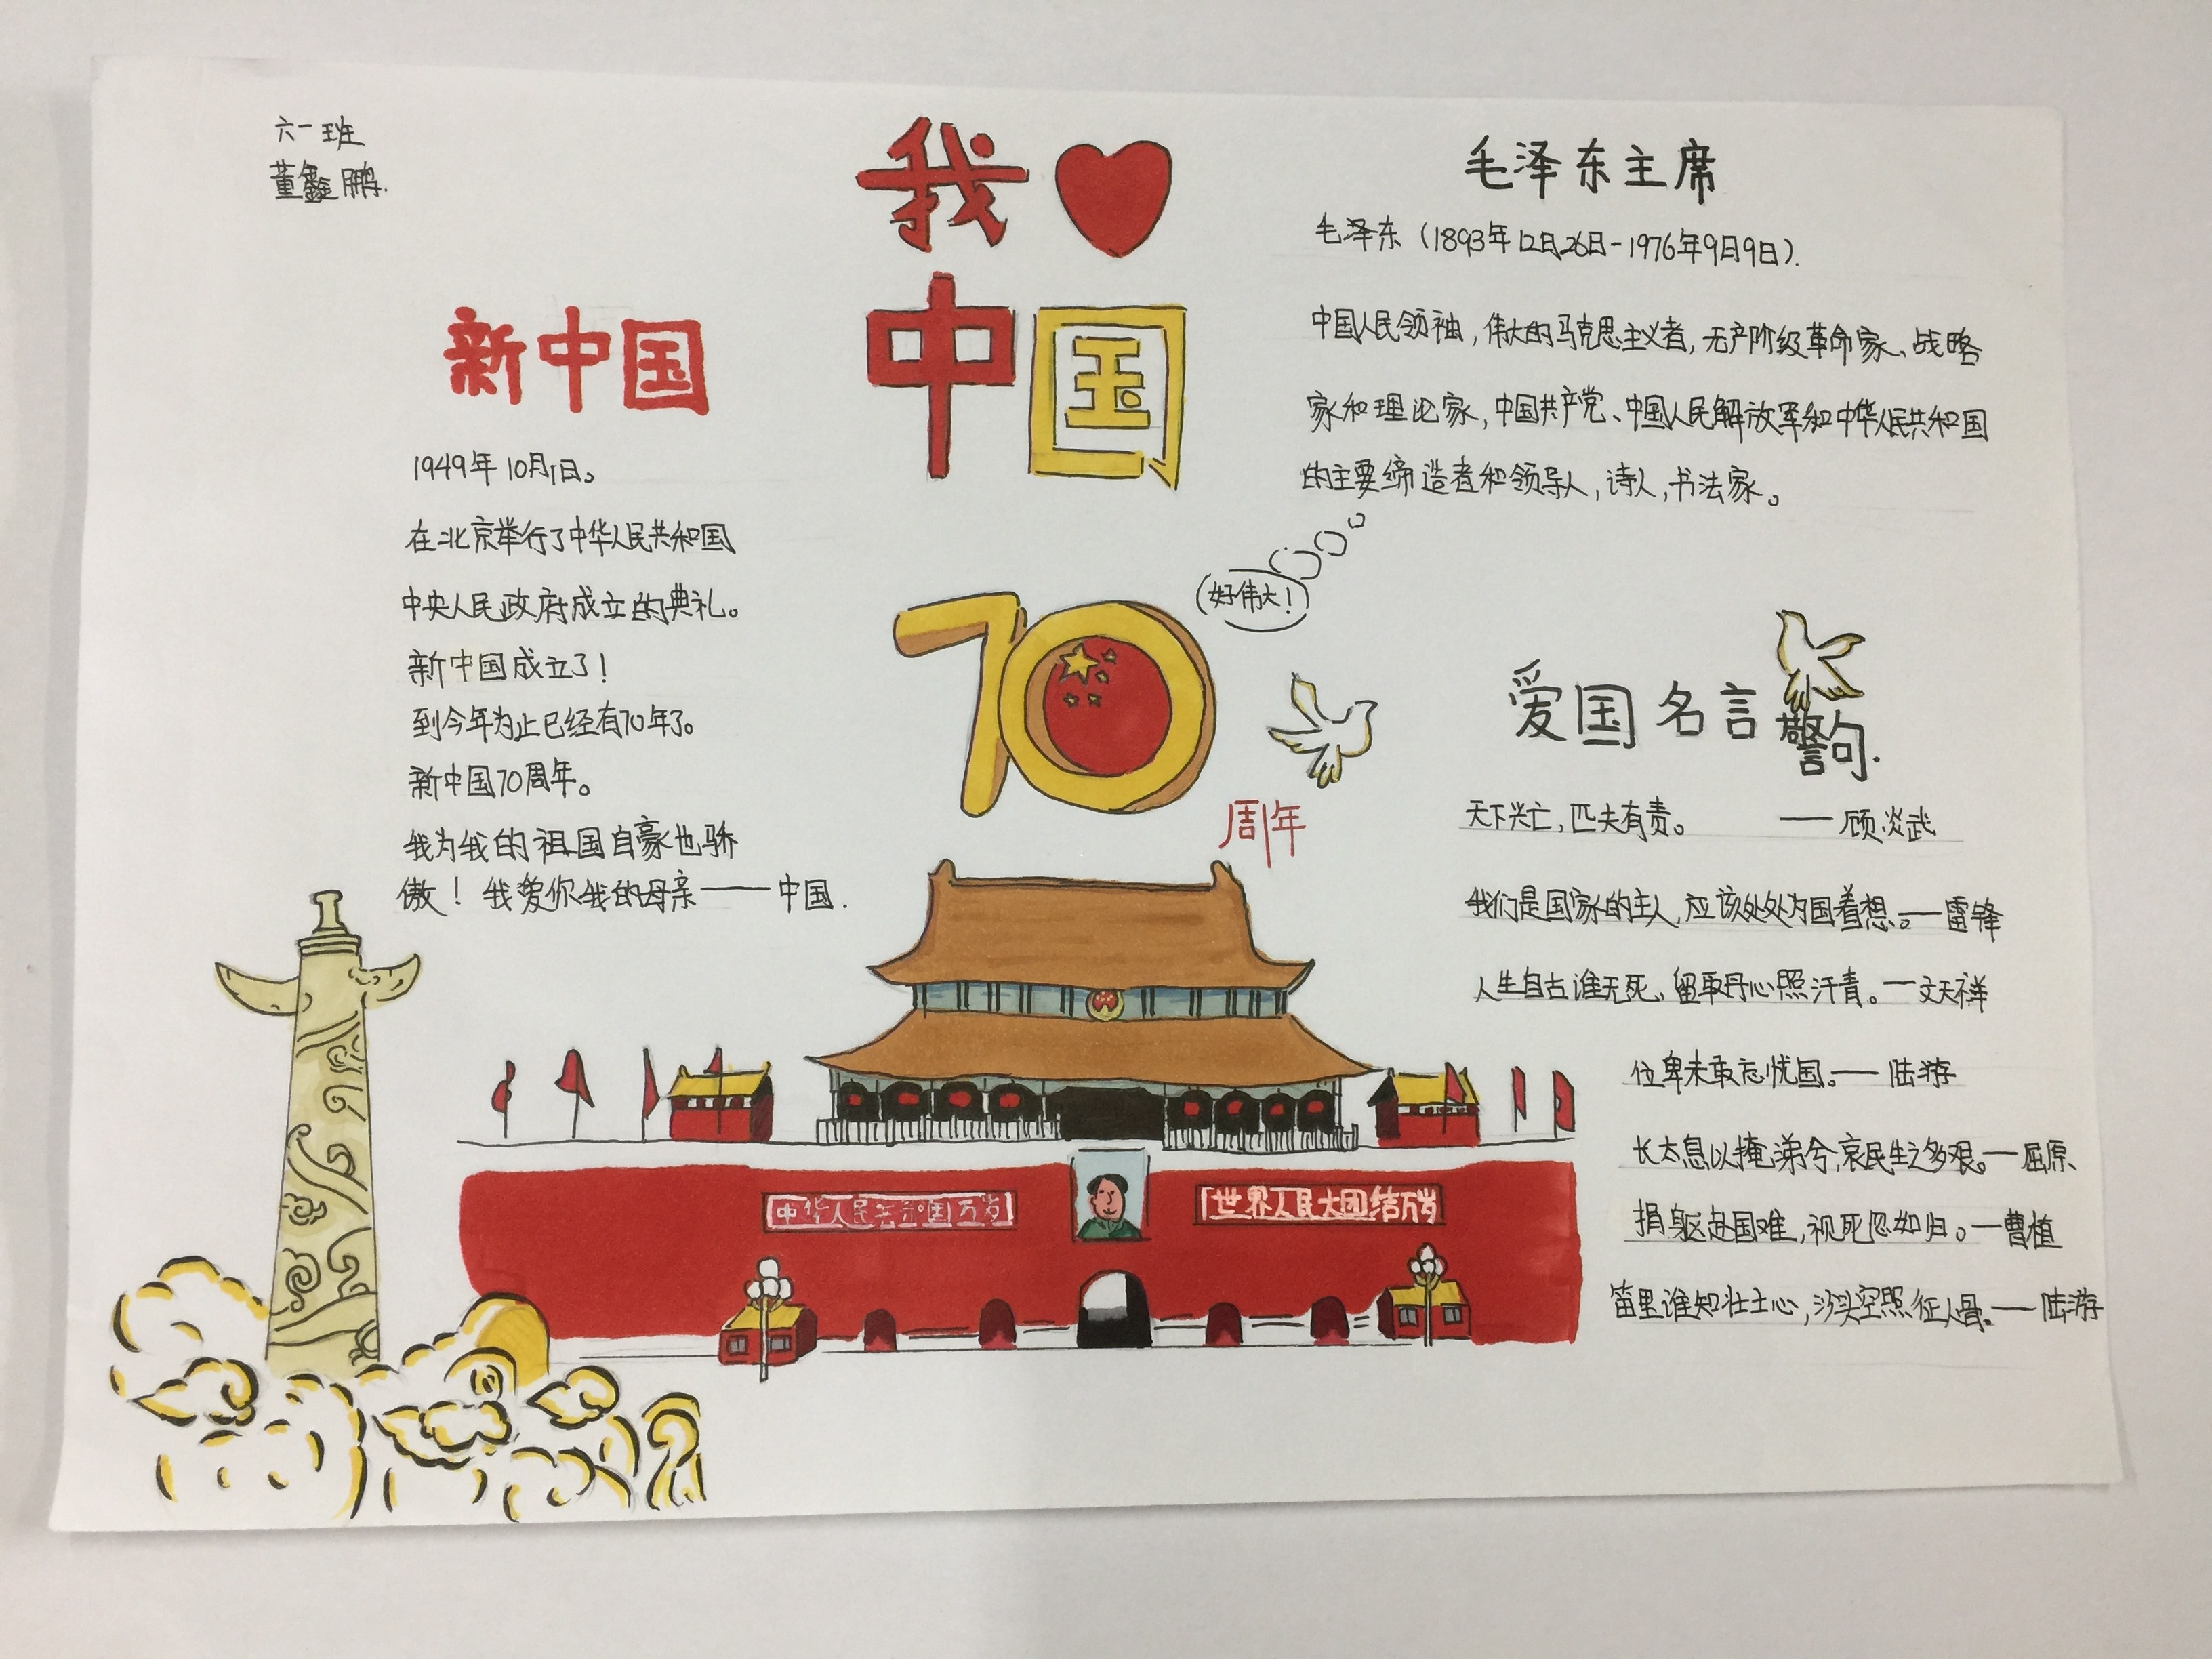 六一班
董鑫鹏.
我
中国
新中国
1949年10月1日。
在北京举行了中华人民共和国
中央人民政府成立的典礼。
新中国成立了！
到今年为止已经有70年了。
新中国70周年。
我为我的祖国自豪也骄
傲！我爱你我的母亲——中国.
毛泽东主席
毛泽东（1893年12月26日-1976年9月9日）.
中国人民领袖,伟大的马克思主义者,无产阶级革命家、战略
家和理论家,中国共产党、中国人民解放军和中华人民共和国
的主要缔造者和领导人,诗人,书法家。
好伟大！
70
周年
爱国名言警句.
天下兴亡,匹夫有责。——顾炎武
我们是国家的主人,应该处处为国着想。——雷锋
人生自古谁无死,留取丹心照汗青。—文天祥
位卑未敢忘忧国。——陆游
长太息以掩涕兮,哀民生之多艰。—屈原
捐躯赴国难,视死忽如归。—曹植
笛里谁知壮士心,沙头空照征人骨。——陆游
中华人民共和国万岁
世界人民大团结万岁